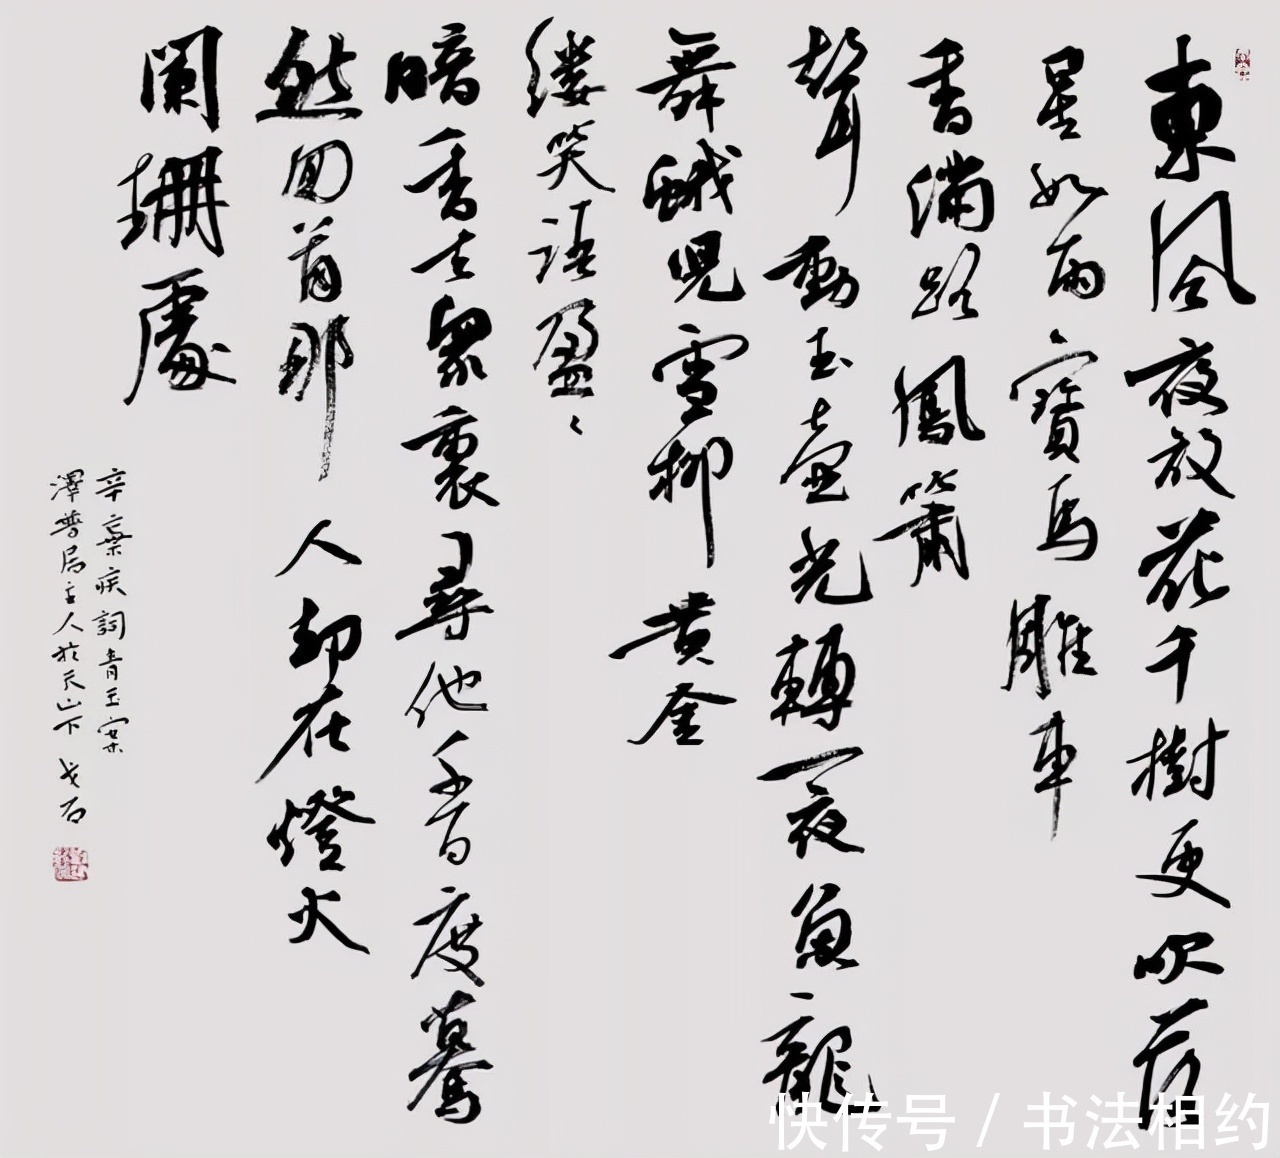 東風夜放花千樹更吹落
星如雨寶馬雕車
香滿路鳳簫
聲動玉壺光轉一夜魚龍
舞蛾兒雪柳黃金
縷笑語盈〻
暗香去眾裏尋他千百度驀
然回首那人却在燈火
闌珊處
辛棄疾詞青玉案
澤普居主人於天山下 戈石
快传号 / 书法相约